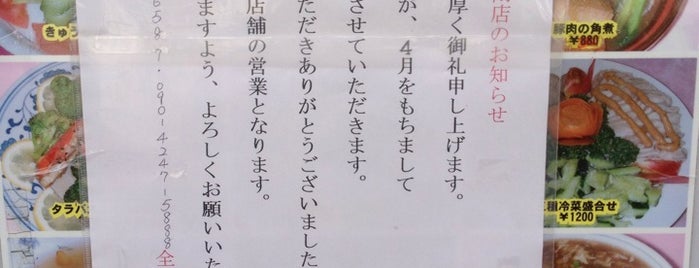 店のお知らせ
厚く御礼申し上げます。
が、4月をもちまして
させていただきます。
ただきありがとうございました
店舗の営業となります。
ますよう、よろしくお願いいた
658 7.090-4247-5888 全
きゅう
タラバ
豚肉の角煮
¥880
冷菜盛合せ
¥1200